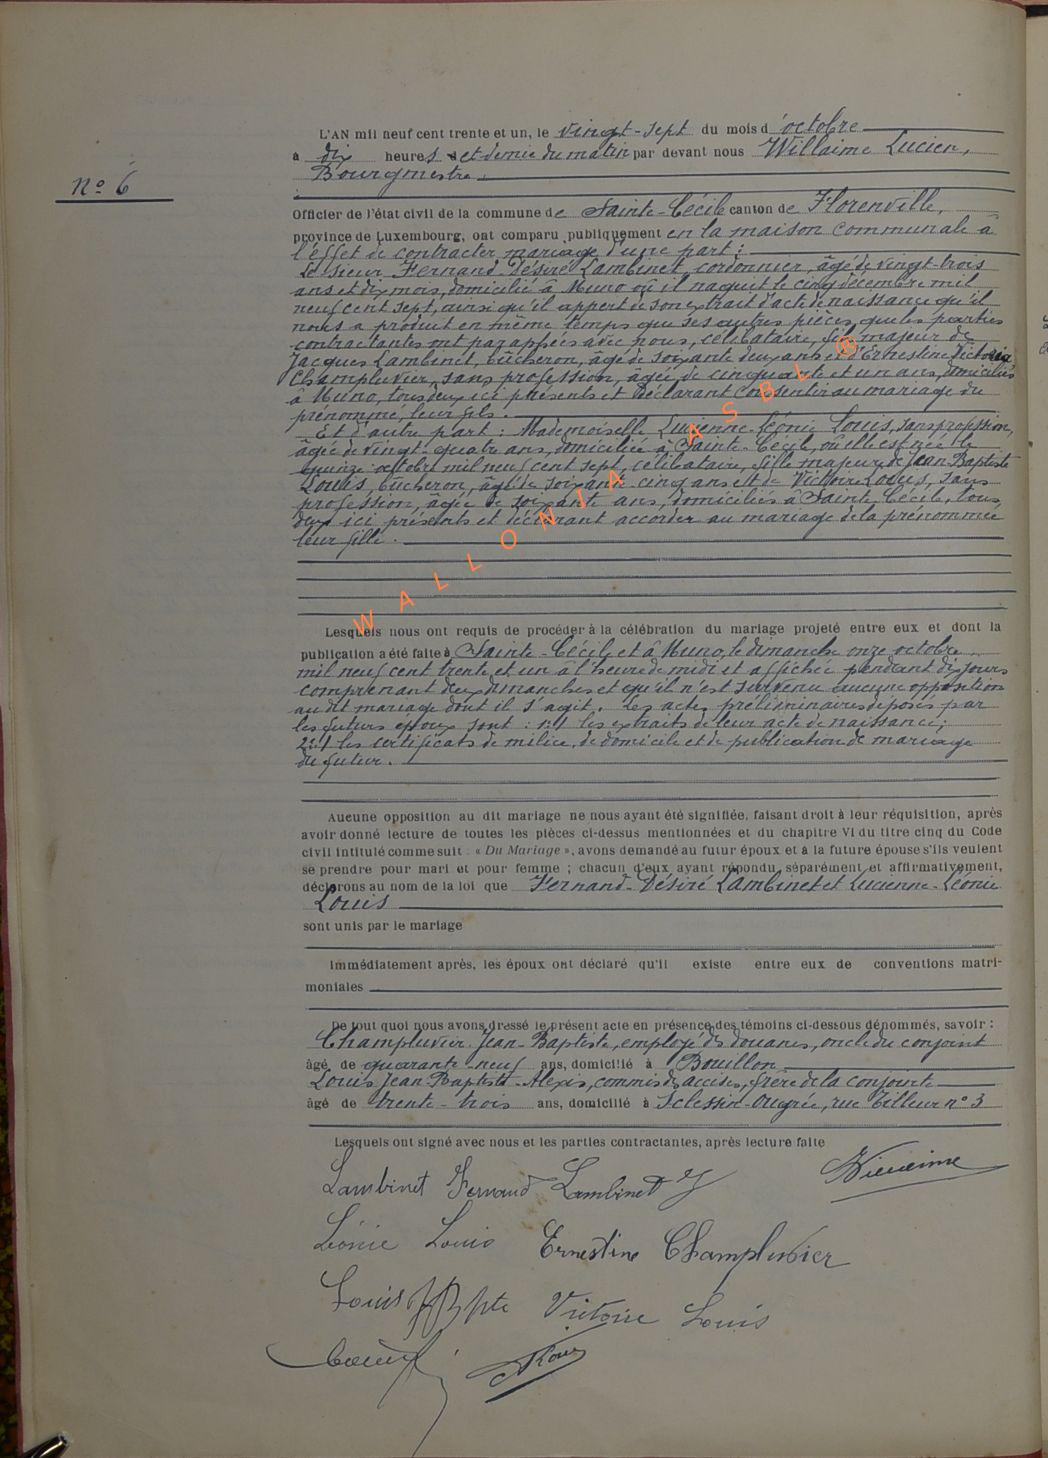 L'AN mil neuf cent trente et un, le vingt-sept du mois d'octobre
à dix heures et demie du matin par devant nous Willaime Lucien,
Bourgmestre
N° 6
Officier de l'état civil de la commune de Sainte-Cécile canton de Florenville,
province de Luxembourg, ont comparu publiquement en la maison communale à
l'effet de contracter mariage d'une part :
Le sieur Fernand-Désiré Lambinet, cordonnier, âgé de vingt-trois
ans et dix mois, domicilié à Muno où il naquit le cinq décembre mil
neuf cent sept, ainsi qu'il appert de son extrait d'acte de naissance qu'il
nous a produit en même temps que ses autres pièces, que les parties
contractantes ont paraphées avec nous, célibataire, fils majeur de
Jacques Lambinet, bûcheron, âgé de soixante deux ans et d'Ernestine Victoria
Champluvier, sans profession, âgée de cinquante et un ans, domiciliés
à Muno, tous deux ici présents et déclarant consentir au mariage du
prénommé, leur fils.
Et d'autre part : Mademoiselle Lucienne-Léonie Louis, sans profession,
âgée de vingt-quatre ans, domiciliée à Sainte-Cécile, où elle est née le
quinze octobre mil neuf cent sept, célibataire, fille majeure de Jean-Baptiste
Louis, bûcheron, âgé de soixante-cinq ans et de Victoire Louis, sans
profession, âgée de soixante ans, domiciliés à Sainte-Cécile, tous
deux ici présents et déclarant accorder au mariage de la prénommée
leur fille.
Lesquels nous ont requis de procéder à la célébration du mariage projeté entre eux et dont la
publication a été faite à Sainte-Cécile et à Muno, le dimanche onze octobre
mil neuf cent trente et un à l'heure de midi et affichée pendant dix jours
comprenant deux dimanches et qu'il n'est survenu aucune opposition
au dit mariage dont il s'agit. Les actes préliminaires déposés par
les futurs époux sont : n°1 les extraits de leur acte de naissance ;
2°/ les certificats de milice, de domicile et de publication de mariage
du futur.
Aucune opposition au dit mariage ne nous ayant été signifiée, faisant droit à leur réquisition, après
avoir donné lecture de toutes les pièces ci-dessus mentionnées et du chapitre VI du titre cinq du Code
civil intitulé comme suit : « Du Mariage », avons demandé au futur époux et à la future épouse s'ils veulent
se prendre pour mari et pour femme ; chacun d'eux ayant répondu séparément et affirmativement,
déclarons au nom de la loi que Fernand-Désiré Lambinet et Lucienne-Léonie
Louis
sont unis par le mariage
Immédiatement après, les époux ont déclaré qu'il existe entre eux de conventions matri-
moniales
De tout quoi nous avons dressé le présent acte en présence des témoins ci-dessous dénommés, savoir :
Champluvier Jean-Baptiste, employé des douanes, oncle du conjoint
âgé de quarante-neuf ans, domicilié à Bouillon
Louis Jean-Baptiste-Alexis, commis des accises, frère de la conjointe
âgé de trente-trois ans, domicilié à Sclessin-Ougrée, rue Tilleur n° 3
Lesquels ont signé avec nous et les parties contractantes, après lecture faite
Lambinet Fernand Lambinet J Willaime
Léonie Louis Ernestine Champluvier
Louis J Bpte Victoire Louis
WALLONIA ASBL ®